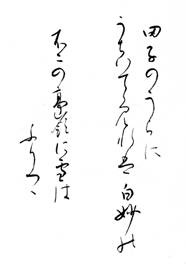 田子のうらに
うちいてゝみれは白妙の
不二の高嶺に雪は
ふりつゝ